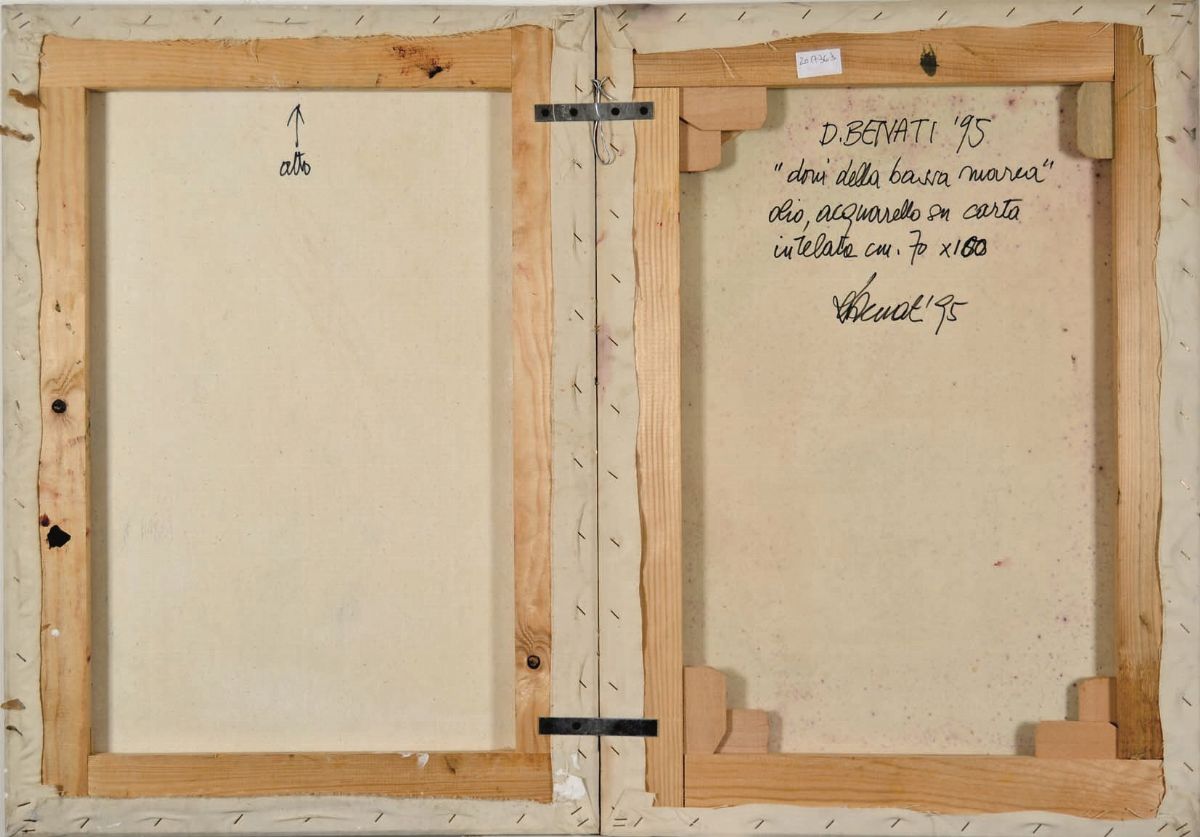 alto
2017363
D. BENATI '95
"doni della bassa marea"
olio, acquarello su carta
intelata cm. 70 x 100
DBenati '95